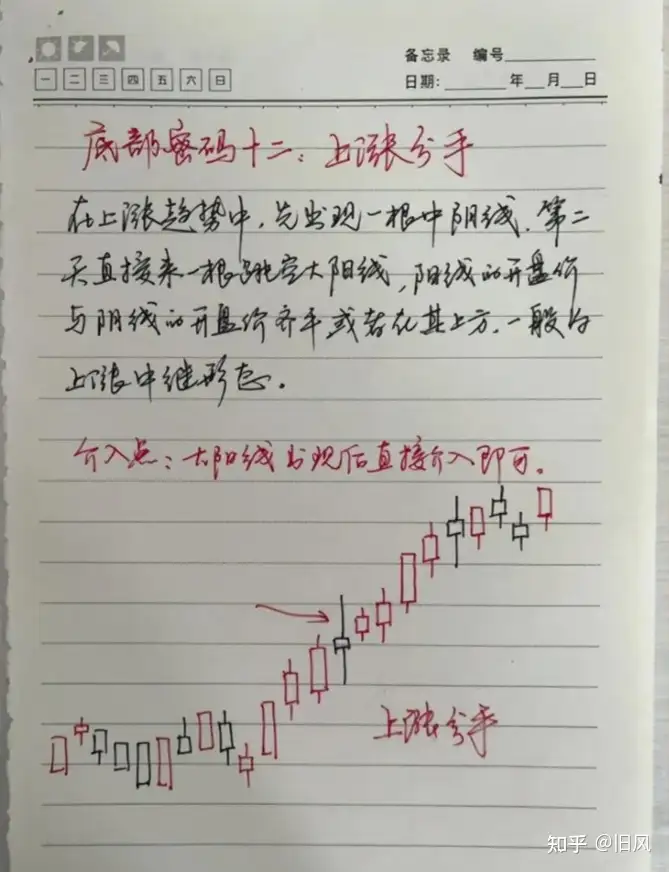 备忘录 编号
一 二 三 四 五 六 日
日期: 年 月 日
底部密码十二：上涨分手
在上涨趋势中，先出现一根中阴线，第二
天直接来一根跳空大阳线，阳线的开盘价
与阴线的开盘价齐平或者在其上方，一般为
上涨中继形态。
介入点：大阳线出现后直接介入即可。
上涨分手
知乎 @旧风